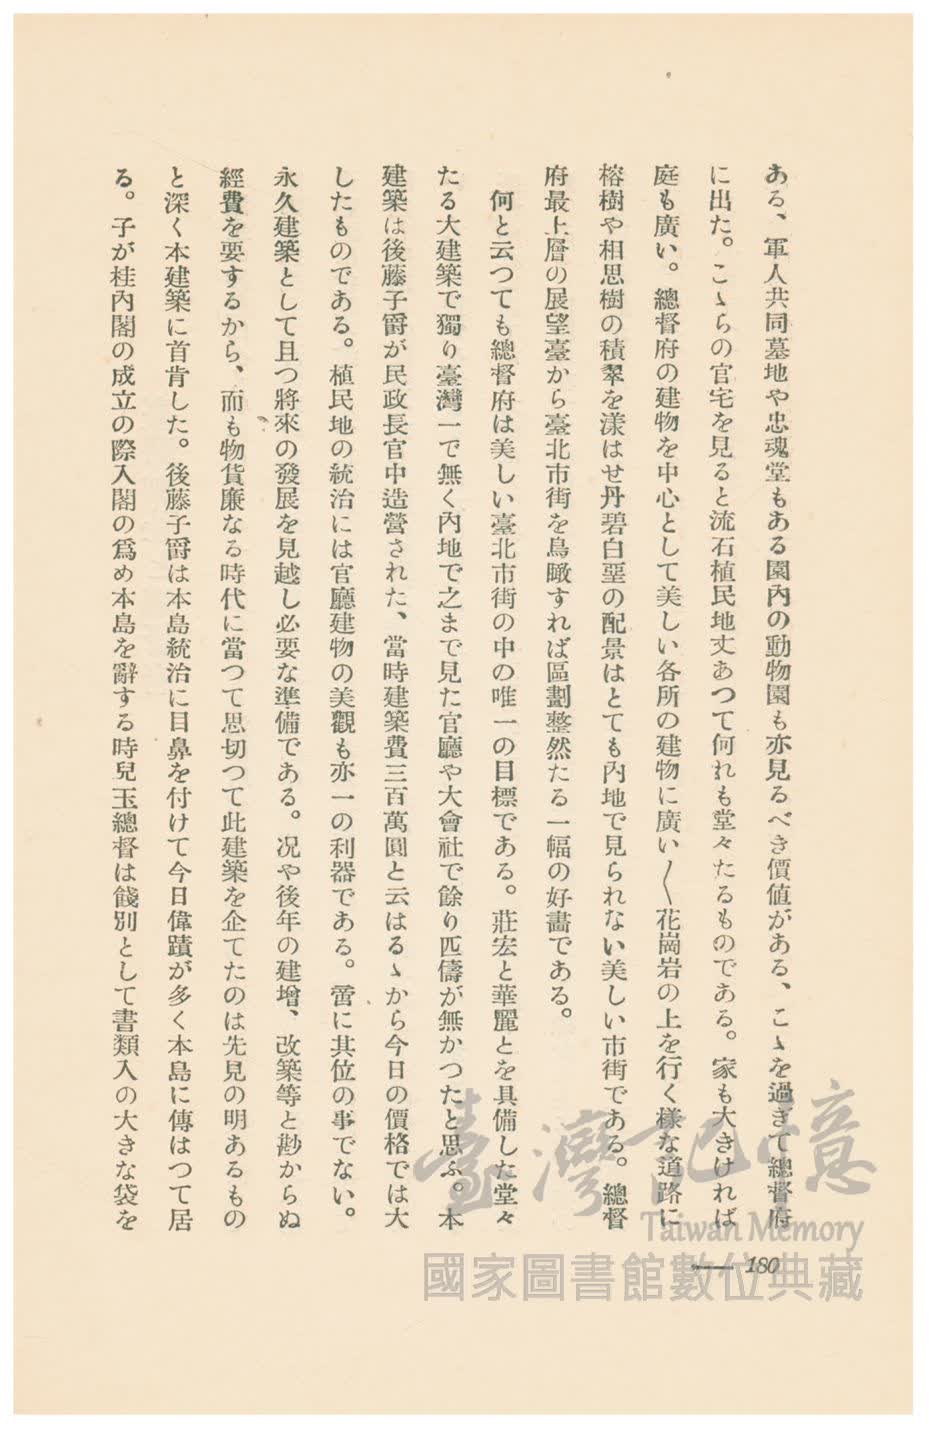 ある、軍人共同墓地や忠魂堂もある園內の動物園も亦見るべき價値がある、こゝを過ぎて總督府
に出た。こゝらの官宅を見ると流石植民地丈あつて何れも堂々たるものである。家も大きければ
庭も廣い。總督府の建物を中心として美しい各所の建物に廣い〱花崗岩の上を行く樣な道路に
榕樹や相思樹の積翠を漾はせ丹碧白堊の配景はとても內地で見られない美しい市街である。總督
府最上層の展望臺から臺北市街を鳥瞰すれば區劃整然たる一幅の好畵である。
何と云つても總督府は美しい臺北市街の中の唯一の目標である。莊宏と華麗とを具備した堂々
たる大建築で獨り臺灣一で無く內地で之まで見た官廳や大會社で餘り匹儔が無かつたと思ふ。本
建築は後藤子爵が民政長官中造營された、當時建築費三百萬圓と云はるゝから今日の價格では大
したものである。植民地の統治には官廳建物の美觀も亦一の利器である。啻に其位の事でない。
永久建築として且つ將來の發展を見越し必要な準備である。况や後年の建增、改築等と尠からぬ
經費を要するから、而も物貨廉なる時代に當つて思切つて此建築を企てたのは先見の明あるもの
と深く本建築に首肯した。後藤子爵は本島統治に目鼻を付けて今日偉蹟が多く本島に傳はつて居
る。子が桂內閣の成立の際入閣の爲め本島を辭する時兒玉總督は餞別として書類入の大きな袋を
180
臺灣記憶
Taiwan Memory
國家圖書館數位典藏